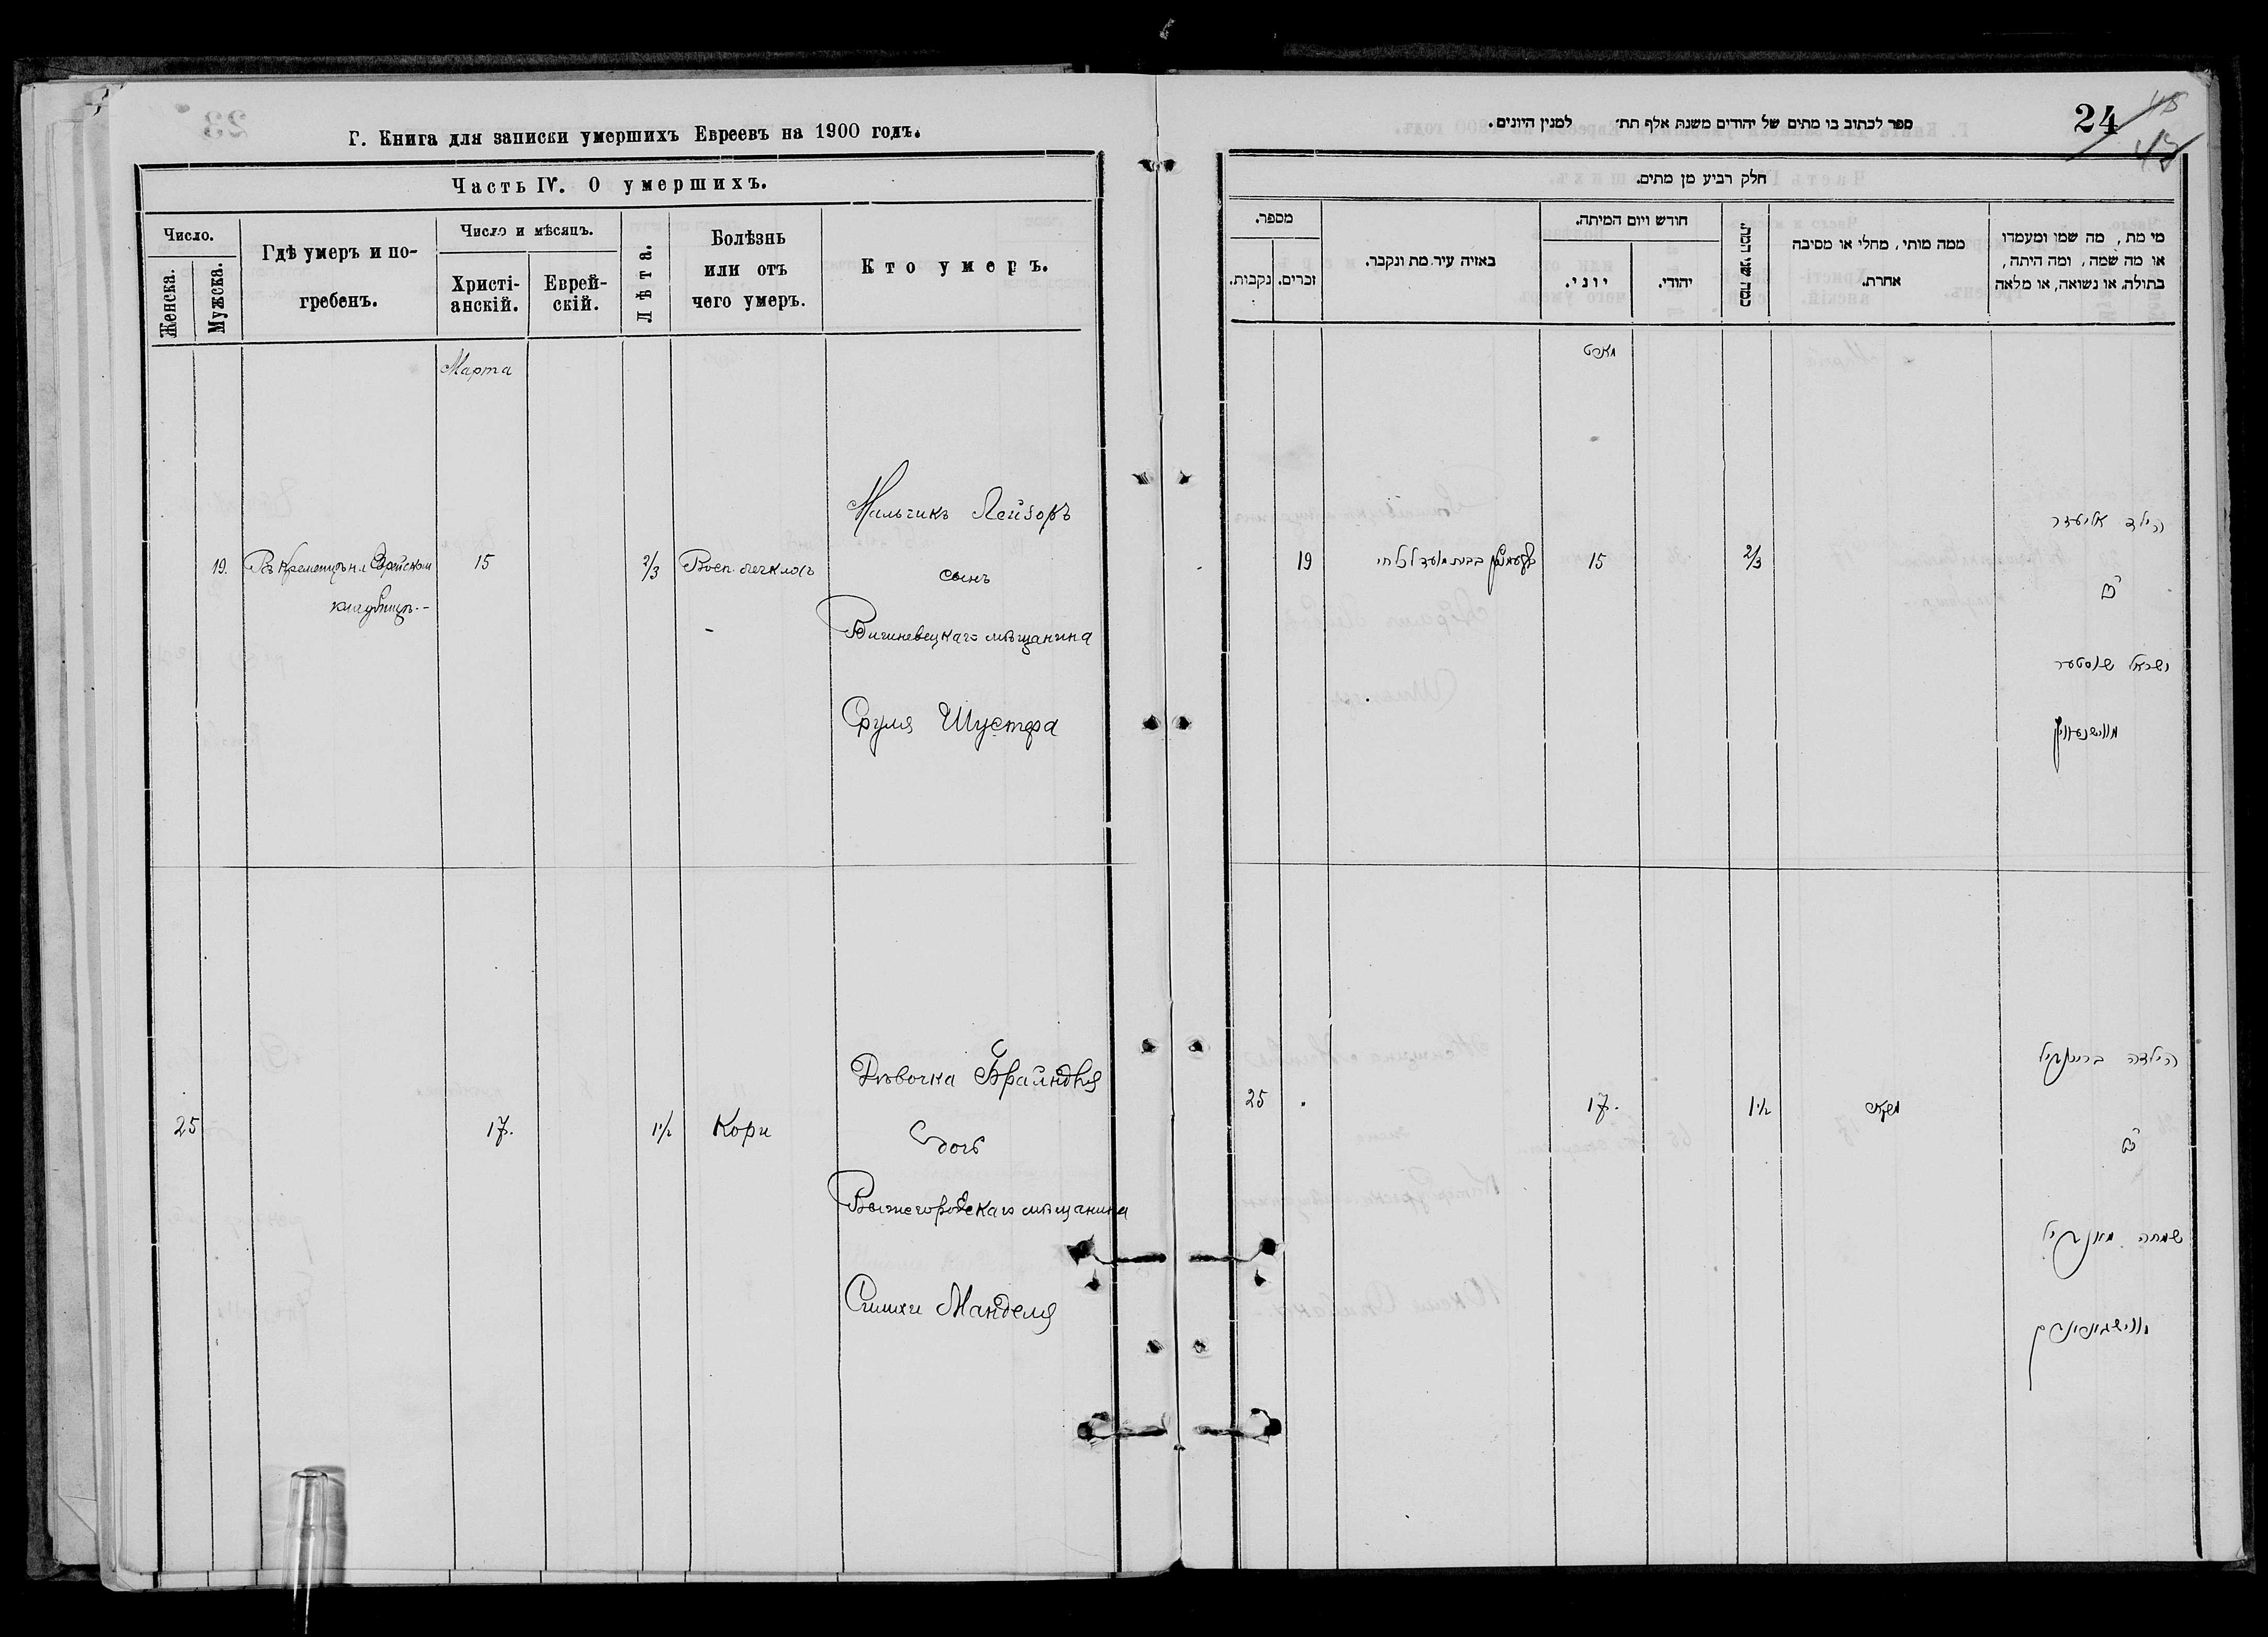 Г. Книга для записки умершихъ Евреевъ на 1900 годъ.
Часть IV. О умершихъ.
Число.
Женска.
Мужска.
Гдѣ умеръ и по-
гребенъ.
Число и мѣсяцъ.
Христі-
анскій.
Еврей-
скій.
Лѣта.
Болѣзнь
или отъ
чего умеръ.
Кто умеръ.
Марта
19.
Въ Кременцѣ на Еврейском
кладбищѣ.-
15
2/3
Восп. легкихъ
Мальчикъ Лейзоръ
сынъ
Вишневецкаго мѣщанина
Сруля Шустера
25
17.
1 1/2
Кори
Дѣвочка Брайндля
дочь
Вышегородскаго мѣщанина
Симхи Манделя
24
43
ספר לכתוב בו מתים של יהודים משנת אלף תת׳ למנין היונים.
חלק רביע מן מתים.
מספר.
נקבות.
זכרים.
באיזה עיר מת ונקבר.
חודש ויום המיתה.
יוני.
יהודי.
כמה שני המת.
ממה מותי, מחלי או מסיבה
אחרת.
מי מת, מה שמו ומעמדו
או מה שמה, ומה היתה,
בתולה או נשואה, או מלאה
מארט
19
בבית מועד לכל חי
15
2/3
הילד אליעזר
ב״ר
ישראל שוסטער
25
17.
1 1/2
הילדה בריינדיל
ב״ר
שמחה מאנדיל